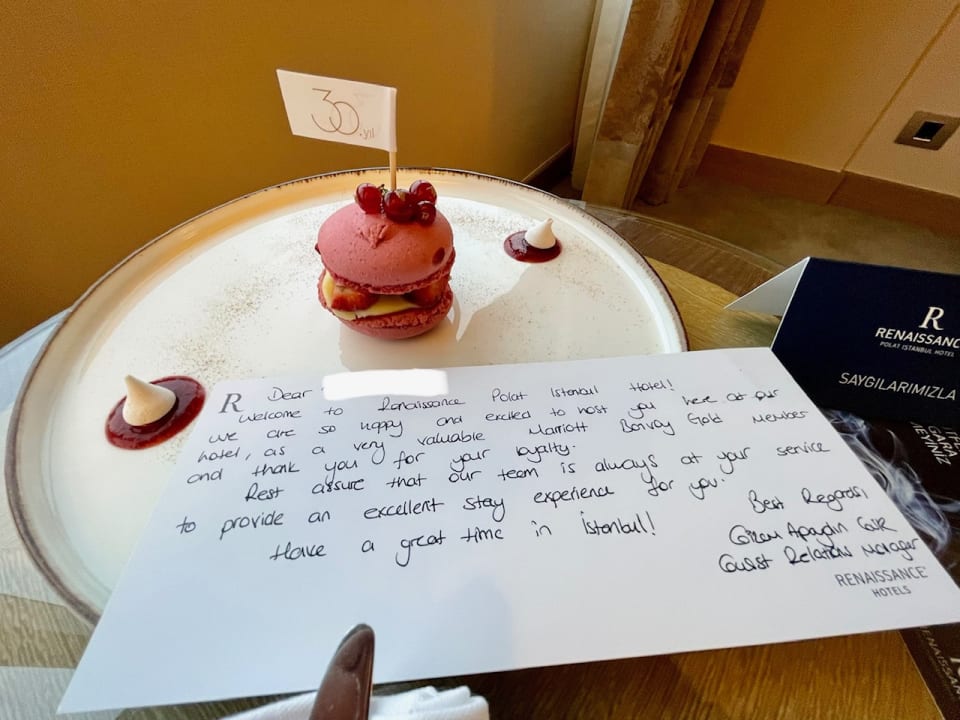 30.yıl
R
RENAISSANC
POLAT ISTANBUL HOTEL
SAYGILARIMIZLA
R
Dear
Welcome to Renaissance Polat Istanbul Hotel!
We are so happy and excited to host you here at our
hotel, as a very valuable Marriott Bonvoy Gold Member
and thank you for your loyalty.
Rest assure that our team is always at your service
to provide an excellent stay experience for you.
Have a great time in İstanbul!
Best Regards,
Guest Relations Manager
RENAISSANCE
HOTELS